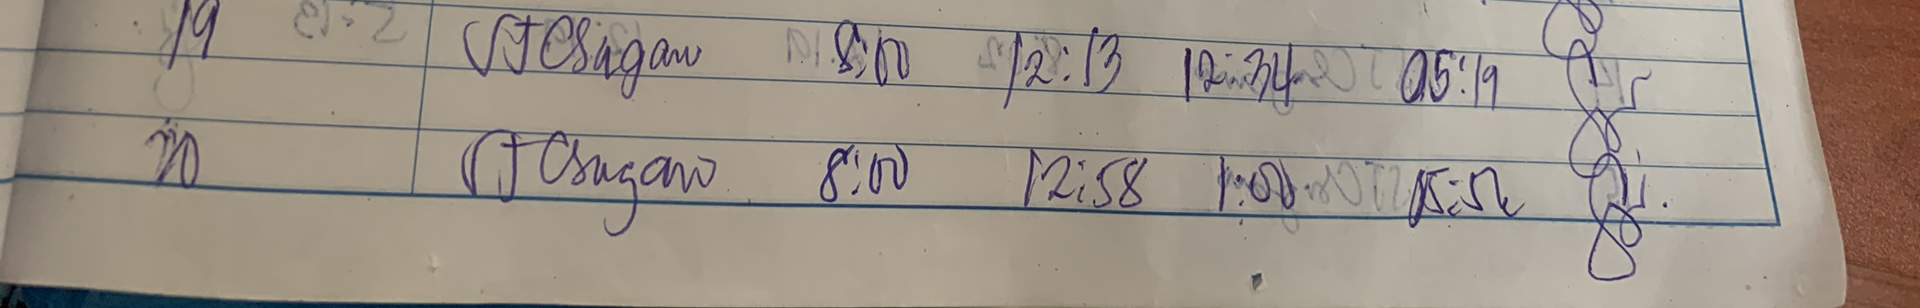 19 STCsugan 8:00 12:13 12:34 05:19
20 STCsugan 8:00 12:58 1:00 05:52